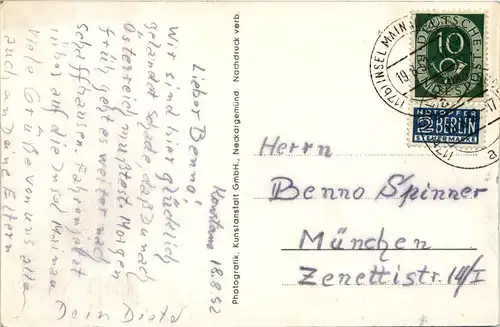 Konstanz 18.8.52
Lieber Benno!
Wir sind hier glücklich
gelandet. Schade daß Du nach
Österreich mußtest. Morgen
früh geht es weiter nach
Schaffhausen. Fahren jetzt
auf die Insel Mainau
Viele Grüße von uns allen
auch an Deine Eltern
Dein Dieter
Photografik, Kunstanstalt GmbH., Neckargemünd. Nachdruck verb.
INSEL MAINAU
DEUTSCHE BUNDESPOST
10
NOTOPFER
2 BERLIN
STEUERMARKE
Herrn
Benno Spinner
München
Zenettistr. 14/I